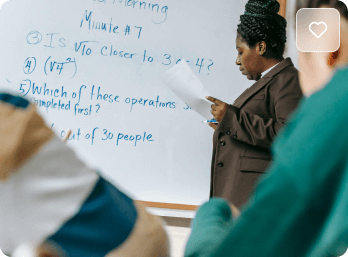 Morning
Minute #7
③ Is √10 closer to 3 or 4?
④ (√4)²
5) Which of these operations
completed first?
out of 30 people